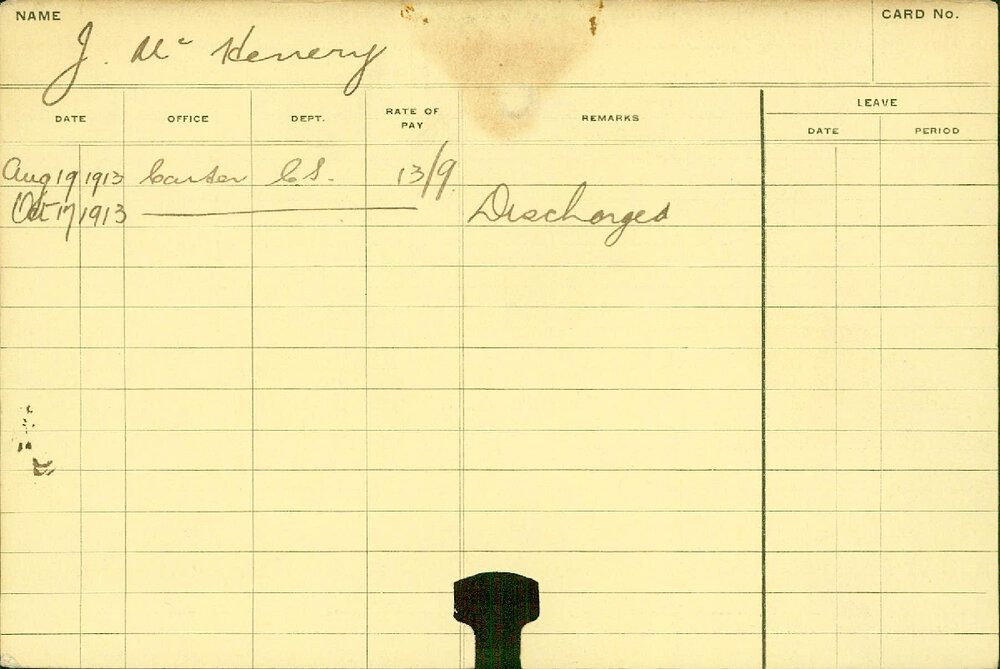 NAME
CARD No.
J. Mc Kenery
DATE OFFICE DEPT. RATE OF PAY REMARKS LEAVE
DATE PERIOD
Aug 19 1913 Carter C.S. 13/9
Oct 17 1913 Discharged